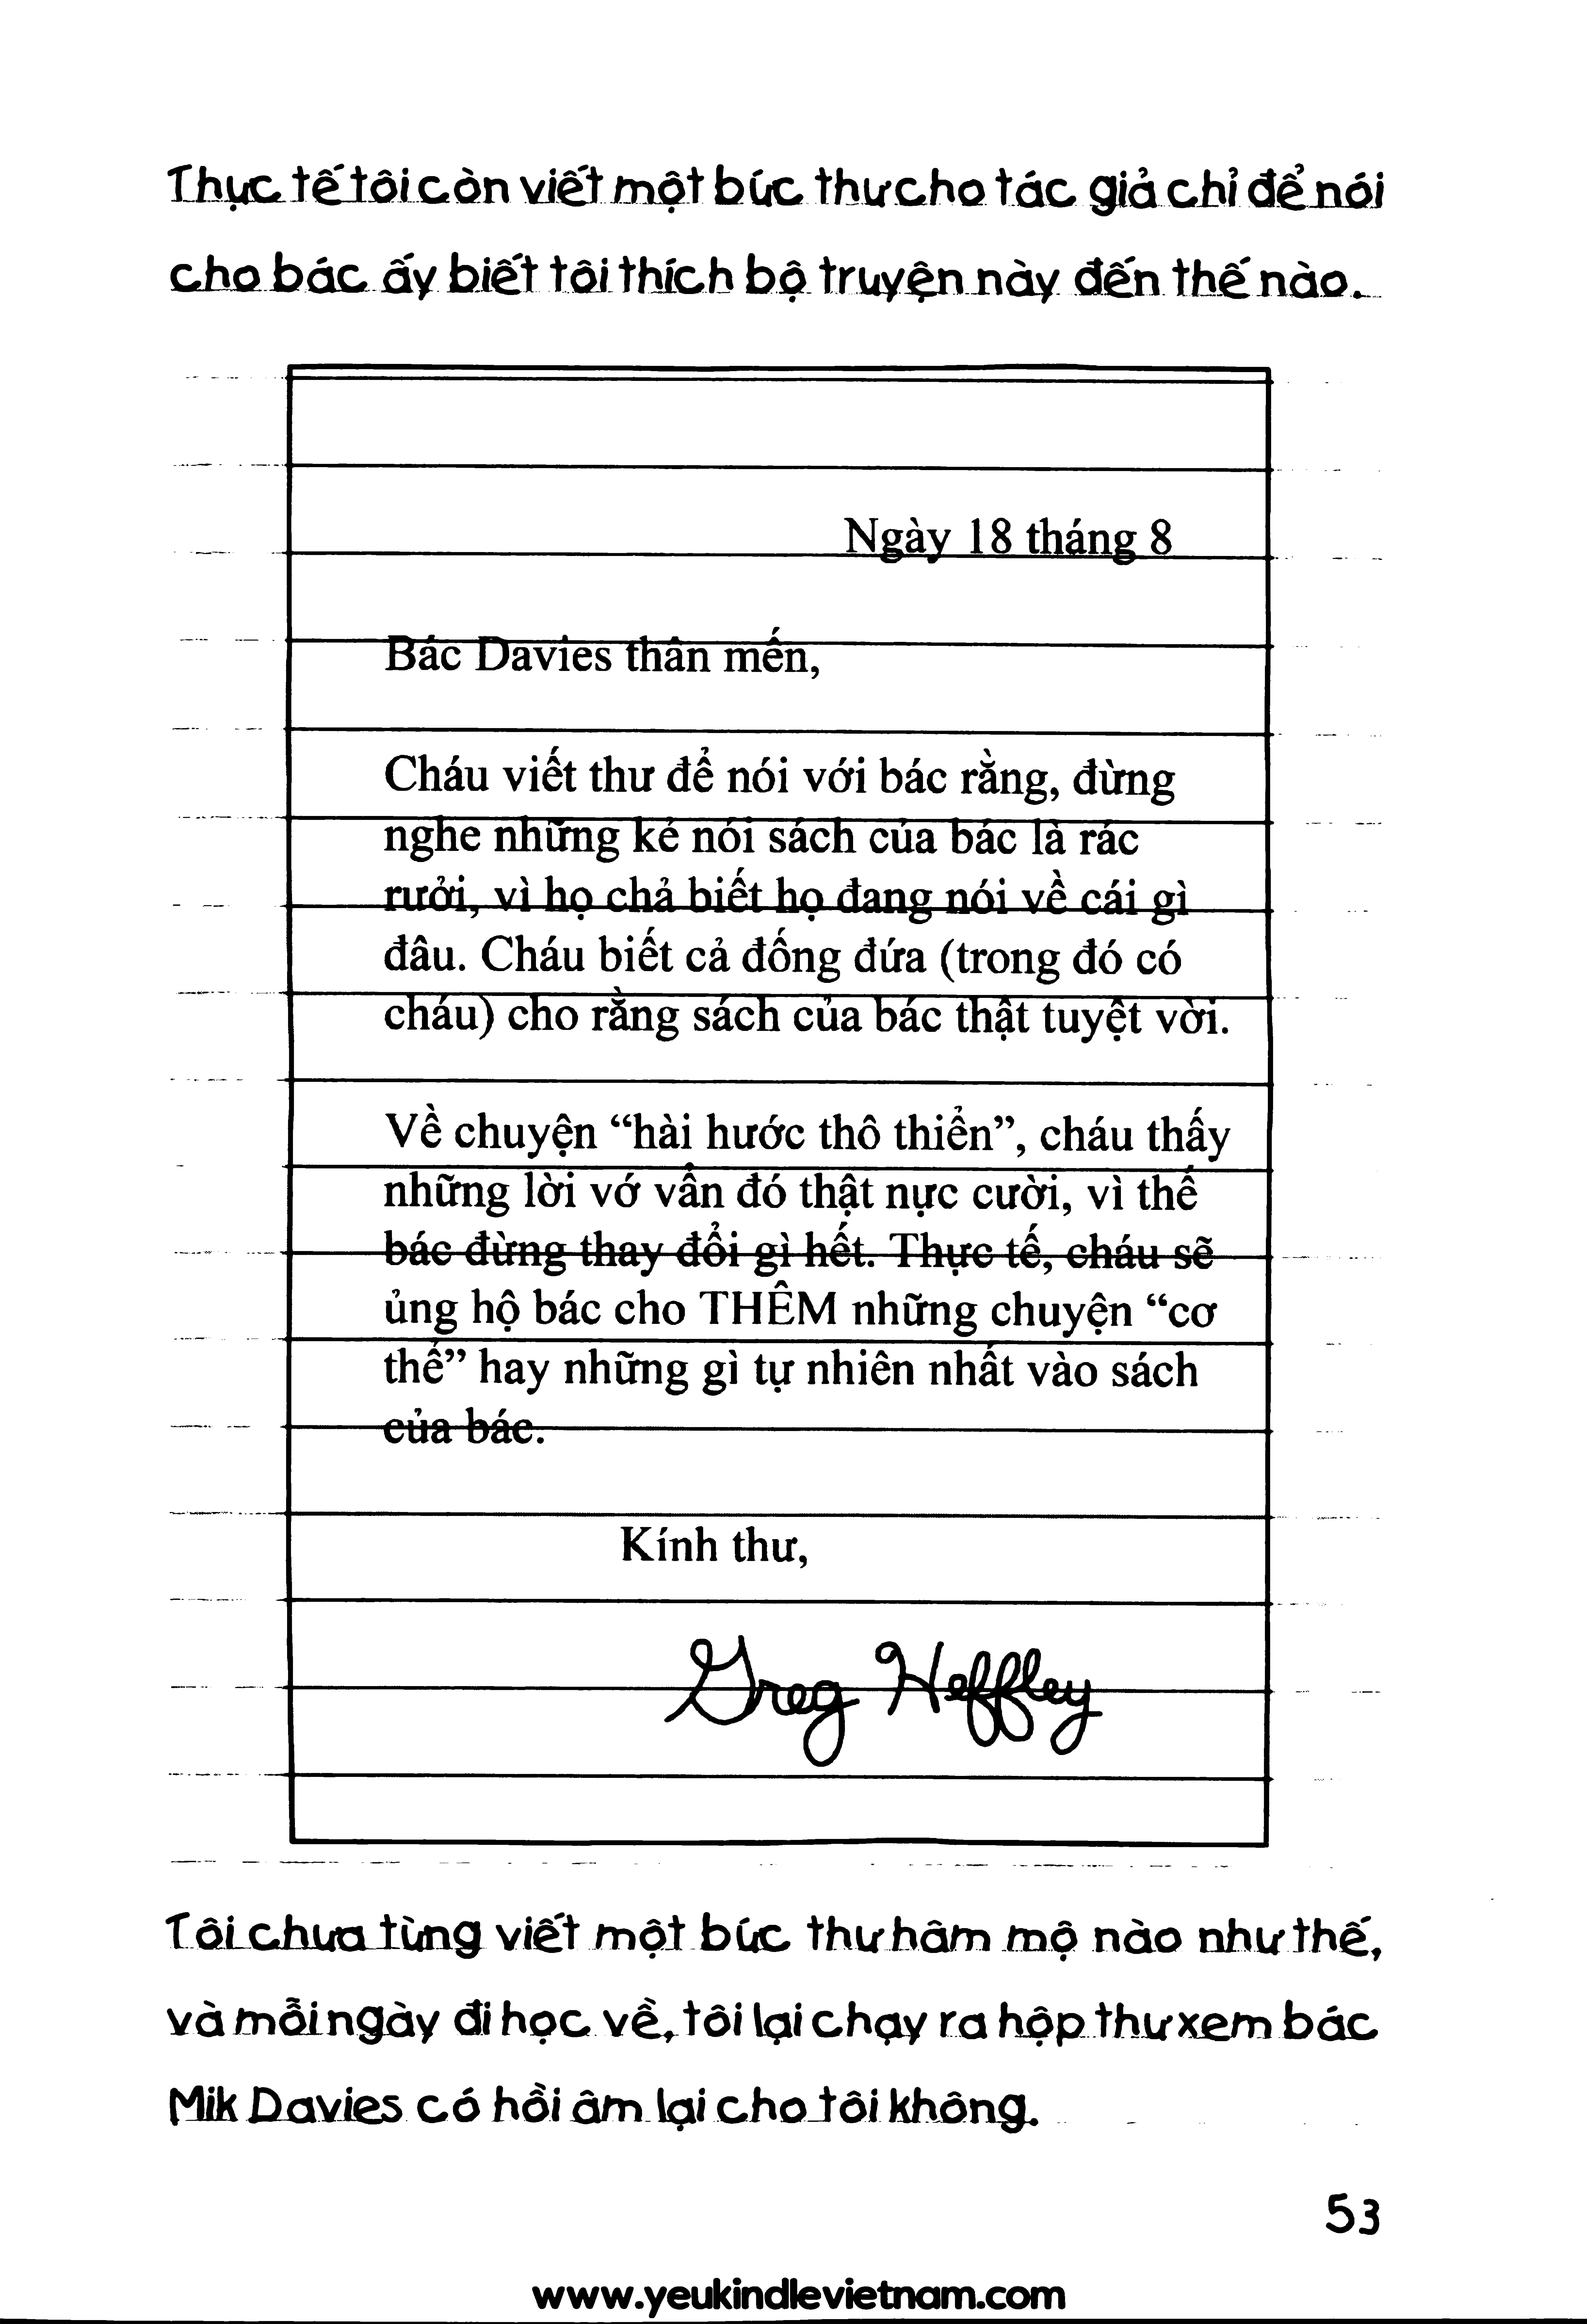 Thực tế tôi còn viết một bức thư cho tác giả chỉ để nói
cho bác ấy biết tôi thích bộ truyện này đến thế nào.
Ngày 18 tháng 8
Bác Davies thân mến,
Cháu viết thư để nói với bác rằng, đừng
nghe những kẻ nói sách của bác là rác
rưởi, vì họ chả biết họ đang nói về cái gì
đâu. Cháu biết cả đống đứa (trong đó có
cháu) cho rằng sách của bác thật tuyệt vời.
Về chuyện “hài hước thô thiển”, cháu thấy
những lời vớ vẩn đó thật nực cười, vì thế
bác đừng thay đổi gì hết. Thực tế, cháu sẽ
ủng hộ bác cho THÊM những chuyện “cơ
thể” hay những gì tự nhiên nhất vào sách
của bác.
Kính thư,
Greg Heffley
Tôi chưa từng viết một bức thư hâm mộ nào như thế,
và mỗi ngày đi học về, tôi lại chạy ra hộp thư xem bác
Mik Davies có hồi âm lại cho tôi không.
53
www.yeukindlevietnam.com